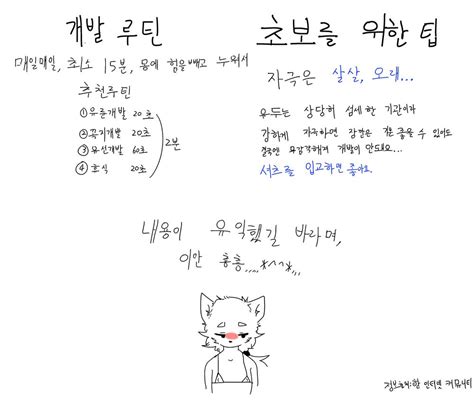 개발 루틴
매일매일, 최소 15분, 몸에 힘을빼고 누워서
추천루틴
① 유륜개발 20초
② 꼭지개발 20초
③ 유선개발 60초
④ 휴식 20초
2분
초보를 위한 팁
자극은 살살, 오래...
유두는 상당히 섬세한 기관이라
강하게 자극하면 당장은 좋을 수 있어도
결국엔 무감각해져 개발이 안돼요...
셔츠를 입고하면 좋아요.
내용이 유익했길 바라며,
이만 흥흥,,,,*^^*,,,
정보출처:한 인터넷 커뮤니티